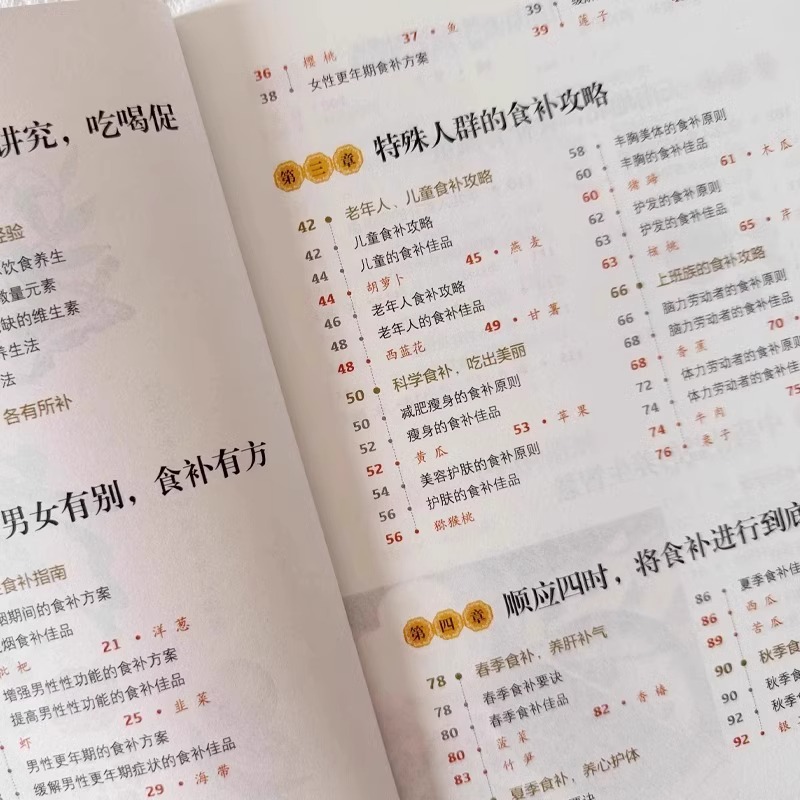 讲究，吃喝促
经验
饮食养生
微量元素
缺的维生素
养生法
法
各有所补
男女有别，食补有方
食补指南
烟期间的食补方案
烟食补佳品
枇杷
21 • 洋葱
增强男性性功能的食补方案
提高男性性功能的食补佳品
虾
25 • 韭菜
男性更年期的食补方案
缓解男性更年期症状的食补佳品
29 • 海带
36 • 樱桃
37 • 鱼
38 女性更年期食补方案
39
39 • 莲子
第三章 特殊人群的食补攻略
42 老年人、儿童食补攻略
42 儿童食补攻略
44 儿童的食补佳品
44 • 胡萝卜
45 • 燕麦
46 老年人食补攻略
48 老年人的食补佳品
48 • 西蓝花
49 • 甘薯
50 科学食补，吃出美丽
50 减肥瘦身的食补原则
52 瘦身的食补佳品
52 • 黄瓜
53 • 苹果
54 美容护肤的食补原则
56 护肤的食补佳品
56 • 猕猴桃
58 丰胸美体的食补原则
60 丰胸的食补佳品
60 • 猪蹄
61 • 木瓜
62 护发的食补原则
63 护发的食补佳品
63 • 核桃
65 • 芹
66 上班族的食补攻略
66 脑力劳动者的食补原则
68 脑力劳动者的食补佳品
68 • 香蕉
70 •
72 体力劳动者的食补原则
74 体力劳动者的食补佳
74 • 牛肉
75
76 • 栗子
第四章 顺应四时，将食补进行到底
78 春季食补，养肝补气
78 春季食补要诀
80 春季食补佳品
80 • 菠菜
82 • 香椿
83 • 竹笋
夏季食补，养心护体
要诀
86 夏季食补佳
86 • 西瓜
89 • 苦瓜
90 秋季食
90 秋季食
92 秋季
92 • 银